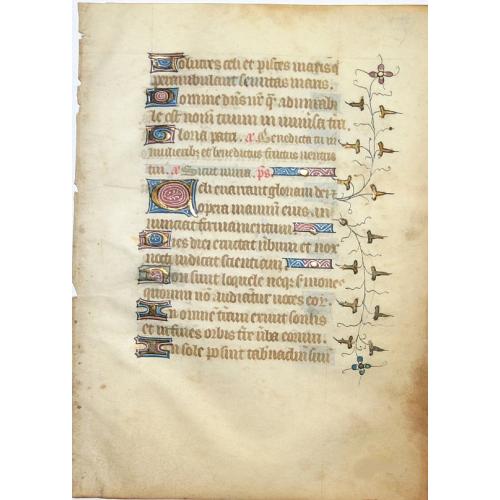 Volucres celi et pisces maris q
perambulant semitas maris.
Domine dn̄s nr̄ q̄ admirabi
le est nom̄ tuum in univsa tra
Gloria patri. Benedicta tu in
mulieribꝫ et benedictus fructus ventris
tui. Sicut mirra. ps̄
Celi enarrant gloriam dei ⁊
opera manuum eius an
nunciat firmamentum.
Dies diei eructat v̄bum et nox
nocti indicat scienciam.
Non sunt loquele neqꝫ smones
quorum nō audiātur voces eoꝝ.
In omnē t̄ram exivit sonus
et in fines orbis tr̄e v̄ba eorum.
In sole posuit tabnaclm̄ suū